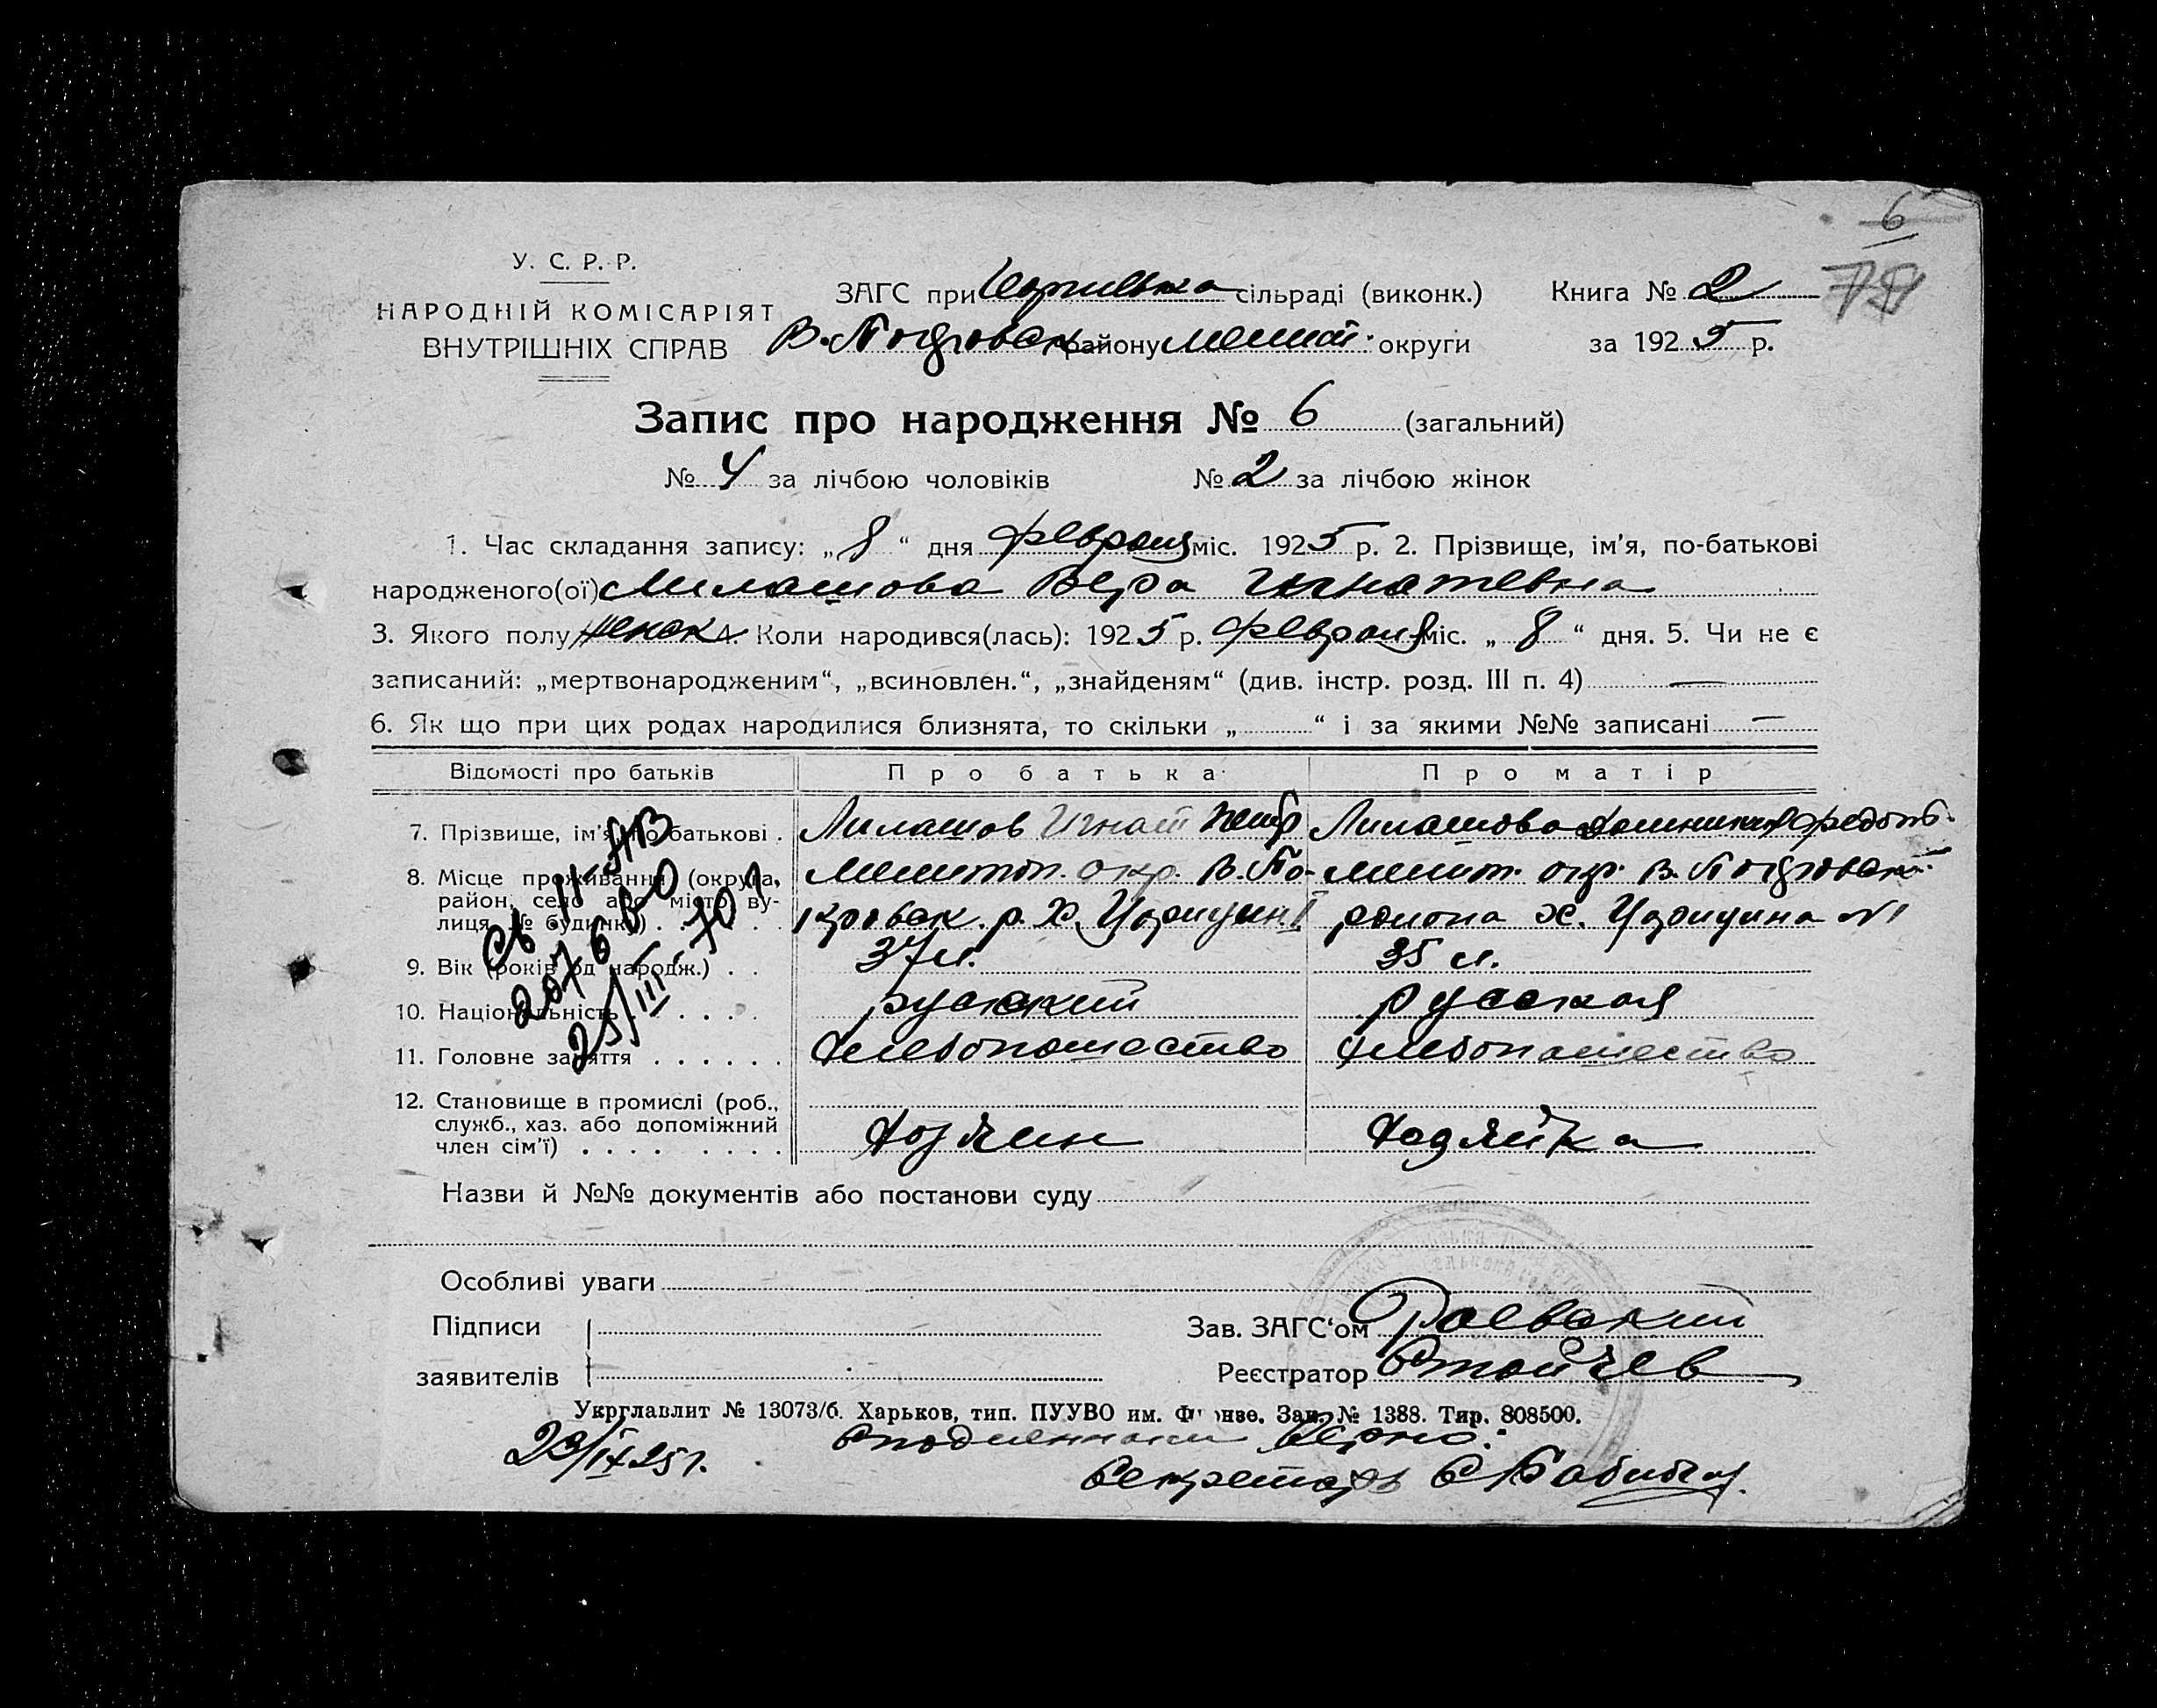 6
У. С. Р. Р.
НАРОДНІЙ КОМІСАРІЯТ
ВНУТРІШНІХ СПРАВ
ЗАГС при сільраді (виконк.)
В. Покровск району Мелит. округи
Книга № 2
за 1925 р.
Запис про народження № 6 (загальний)
№ 4 за лічбою чоловіків № 2 за лічбою жінок
1. Час складання запису: „8“ дня февраля міс. 1925 р. 2. Прізвище, ім'я, по-батькові
народженого(ої) Милашова Вера Игнатевна
3. Якого полу женск 4. Коли народився(лась): 1925 р. февраля міс. „8“ дня. 5. Чи не є
записаний: „мертвонародженим“, „всиновлен.“, „знайденям“ (див. інстр. розд. III п. 4) —
6. Як що при цих родах народилися близнята, то скільки „ “ і за якими №№ записані —
Відомості про батьків Про батька Про матір
7. Прізвище, ім'я, по-батькові . Милашов Игнат Петр Милашова
8. Місце проживання (округа, Мелитоп. окр. В. По- Мелит. окр. В. Покровск
район, село або місто, ву- кровск. р. Х. Царицин I района х. Царицина №1
лиця, № будинку) . . .
9. Вік (років од народж.) . . 37 л. 35 л.
10. Національність . . . . . . русский русская
11. Головне заняття . . . . . . Хлебопашество Хлебопашество
12. Становище в промислі (роб.,
служб., хаз. або допоміжний
член сім'ї) . . . . . . . . Хозяин Хозяйка
Св II-ЯВ
207680
25/III-70 г
Назви й №№ документів або постанови суду
Особливі уваги
Підписи
заявителів
Зав. ЗАГС'ом Раевский
Реєстратор Стойчев
Укрглавлит № 13073/б. Харьков, тип. ПУУВО им. Фрунзе. Зак. № 1388. Тир. 808500.
23/IX 25 г. С подлинным Верно:
Секретарь